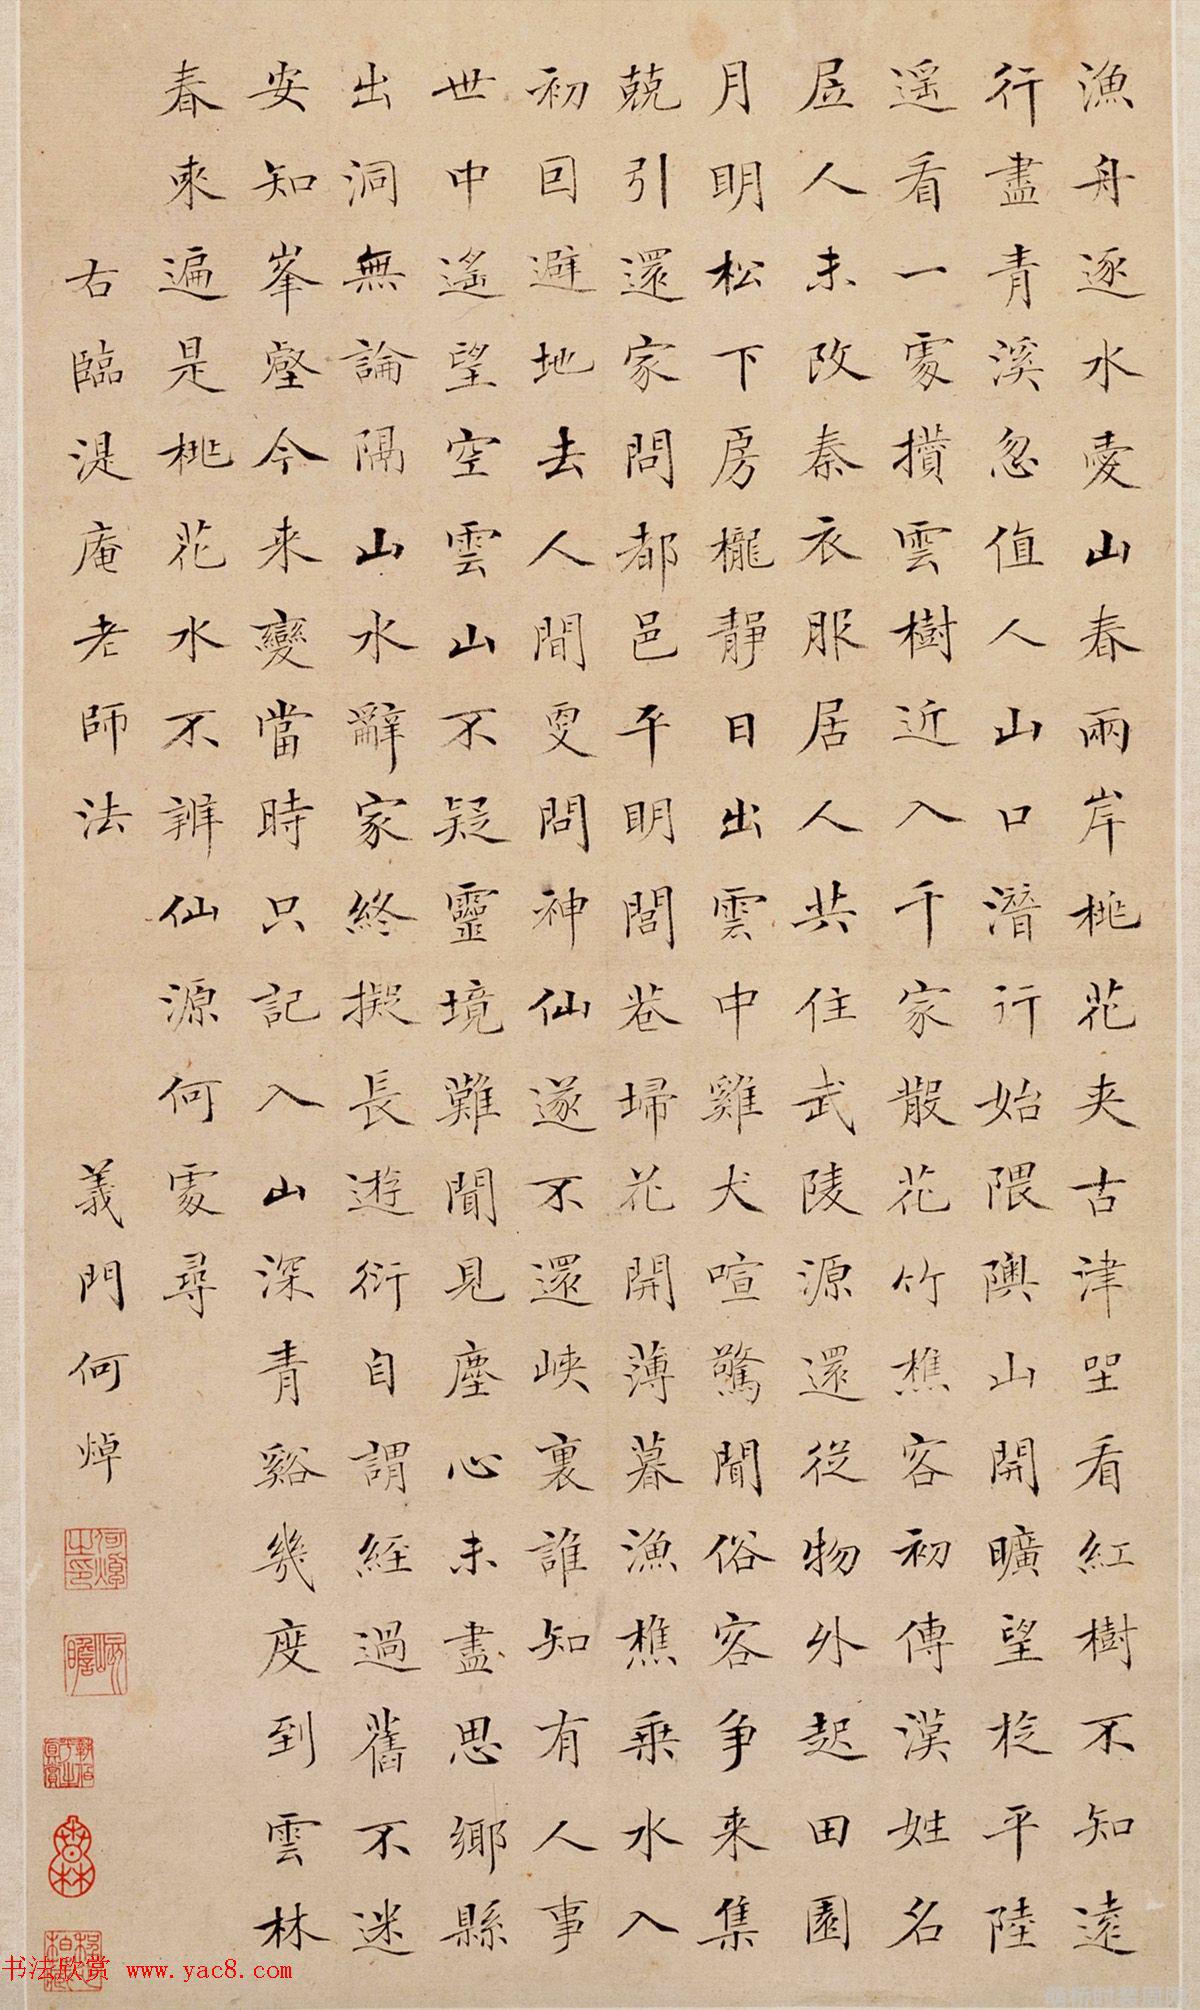 漁舟逐水愛山春兩岸桃花夹古津坐看紅樹不知遠
行盡青溪忽值人山口潛行始隈隩山開曠望旋平陸
遥看一處攢雲樹近入千家散花竹樵客初傳漢姓名
居人未改秦衣服居人共住武陵源還從物外起田園
月明松下房櫳靜日出雲中雞犬喧驚聞俗客争来集
競引還家問都邑平明閭巷掃花開薄暮漁樵乘水入
初回避地去人間更問神仙遂不還峽裏誰知有人事
世中遙望空雲山不疑靈境難聞見塵心未盡思鄉縣
出洞無論隔山水辭家終擬長遊衍自謂經過舊不迷
安知峯壑今来變當時只記入山深青谿幾度到雲林
春來遍是桃花水不辨仙源何處尋
右臨湜庵老師法 義門何焯
何焯之印
屺瞻
书法欣赏 www.yac8.com